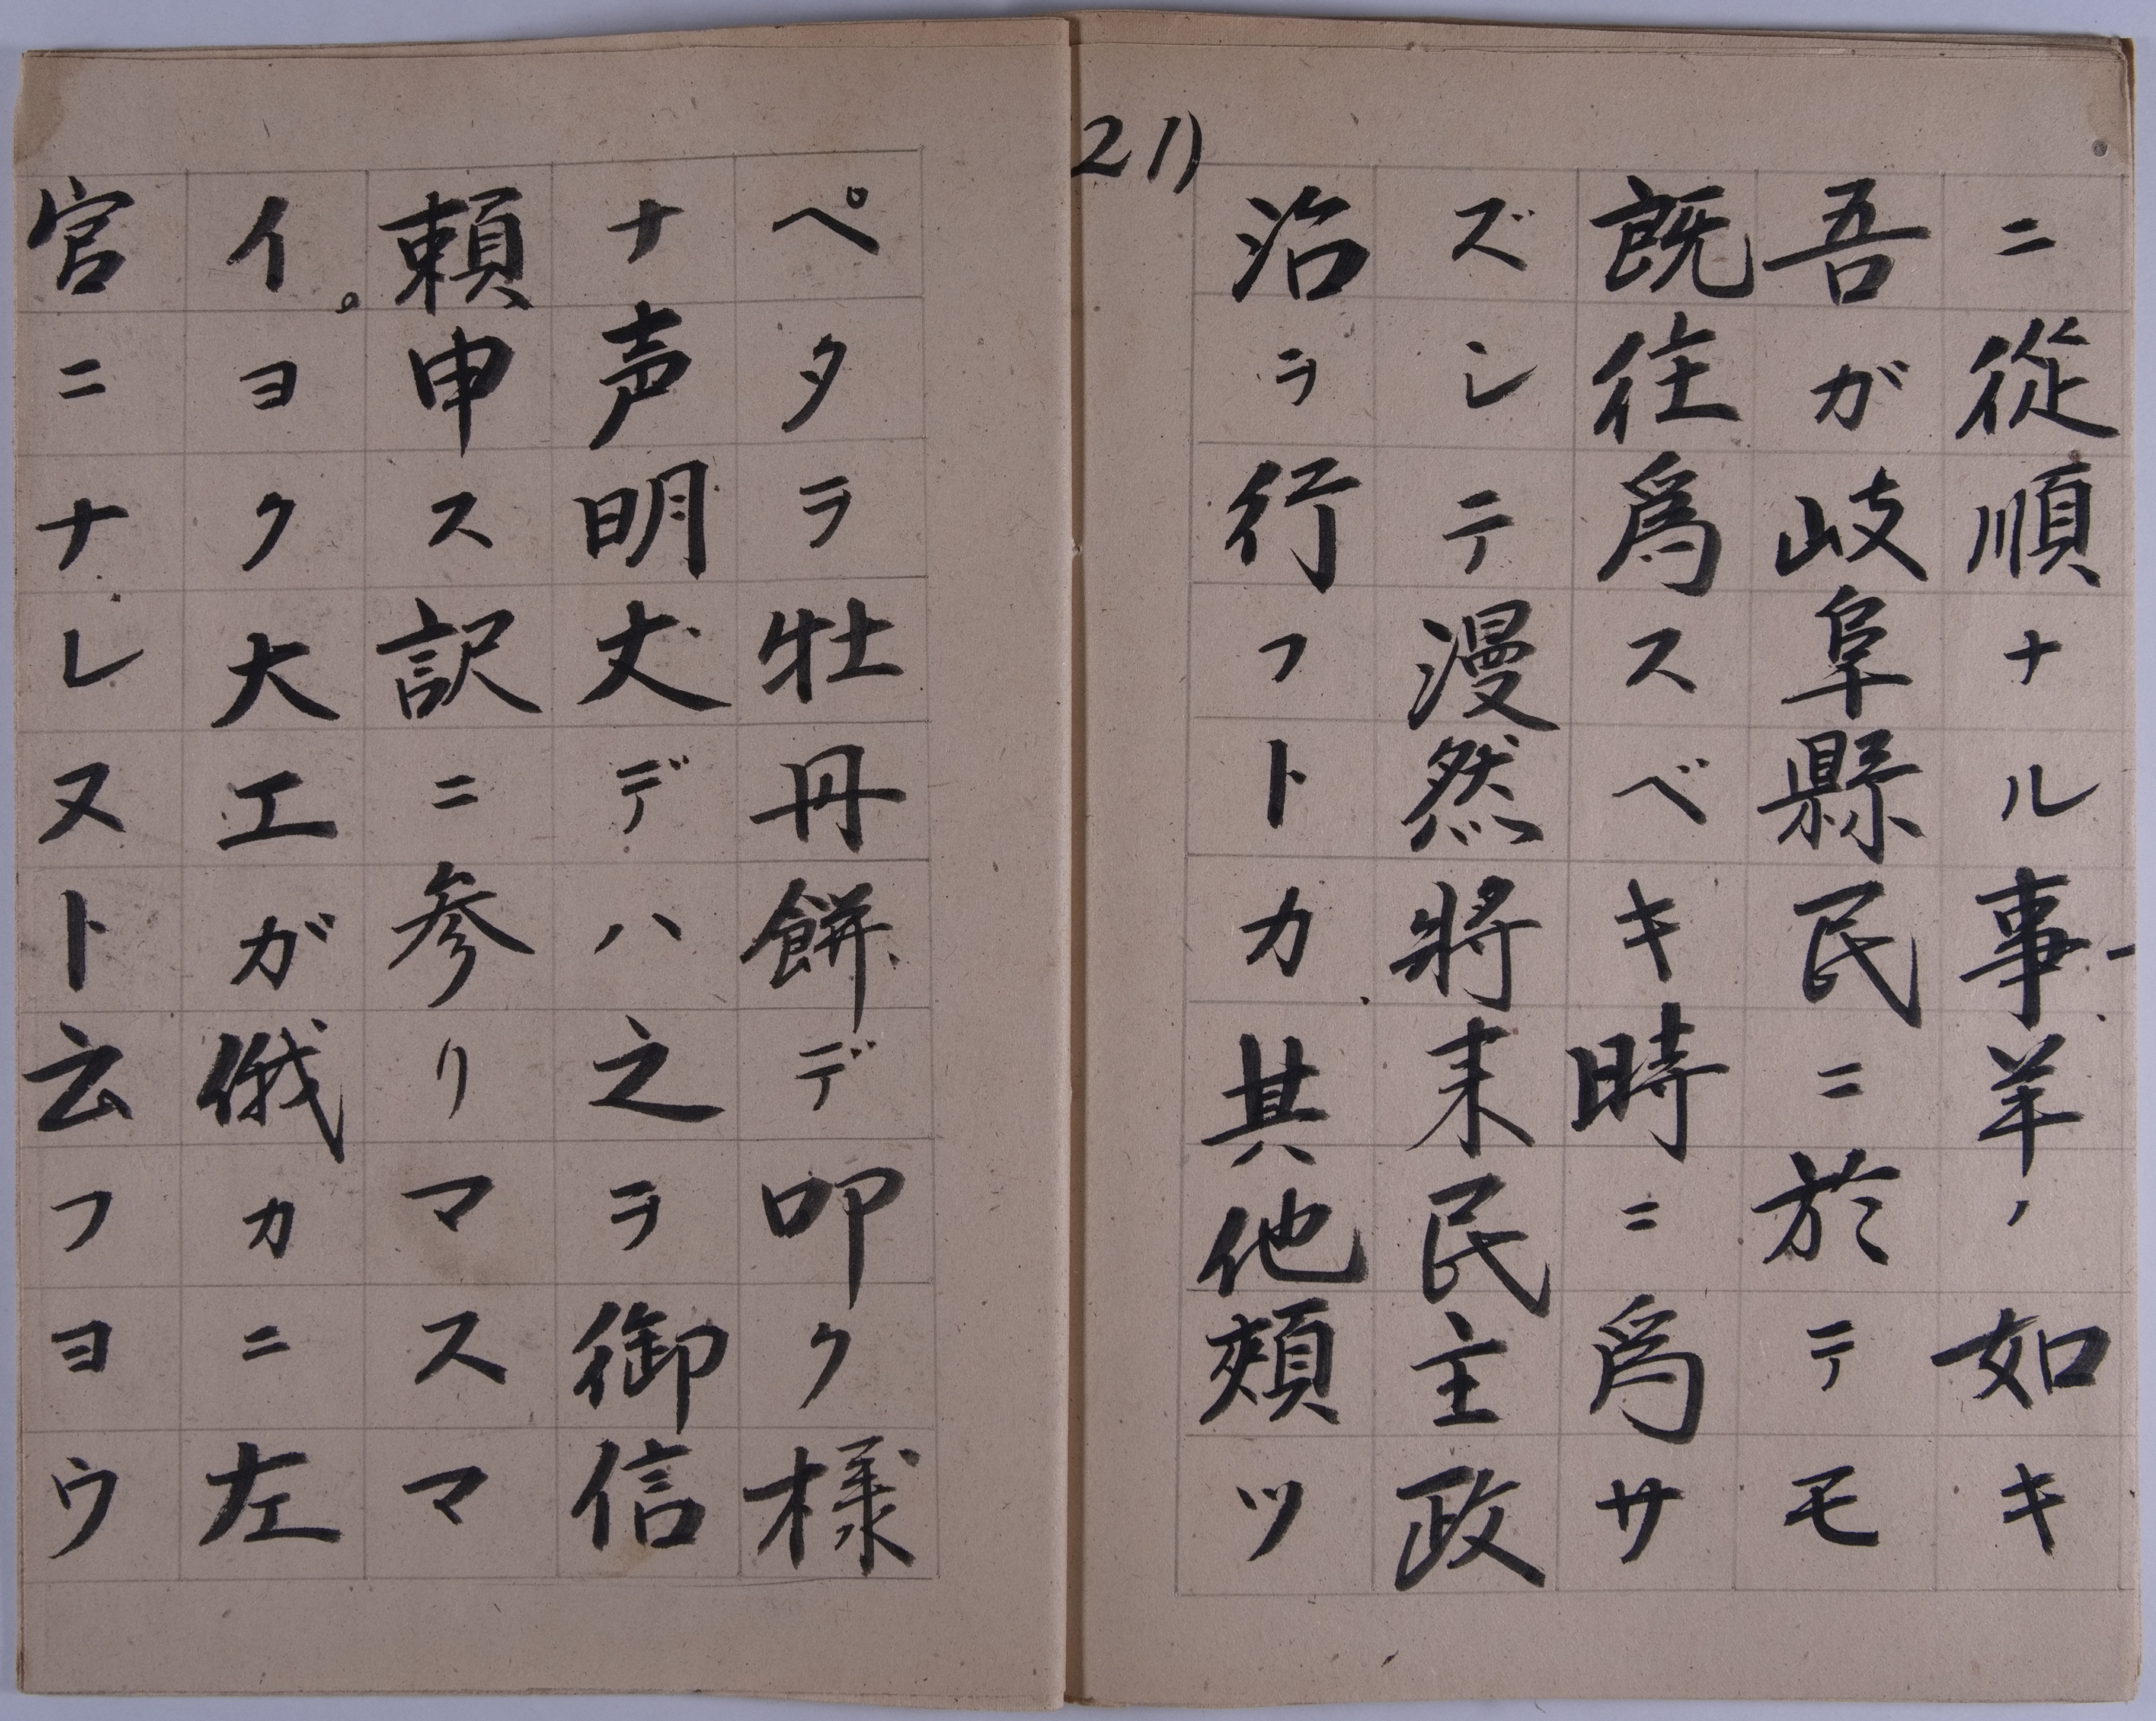 ニ從順ナル事羊ノ如キ
吾ガ岐阜縣民ニ於テモ
既往爲スベキ時ニ爲サ
ズシテ漫然將来民主政
治ヲ行フトカ其他頬ッ
21)
ペタヲ牡丹餅デ叩ク様
ナ声明丈デハ之ヲ御信
頼申ス訳ニ参リマスマ
イ。ヨク大工ガ俄カニ左
官ニナレヌト云フヨウ